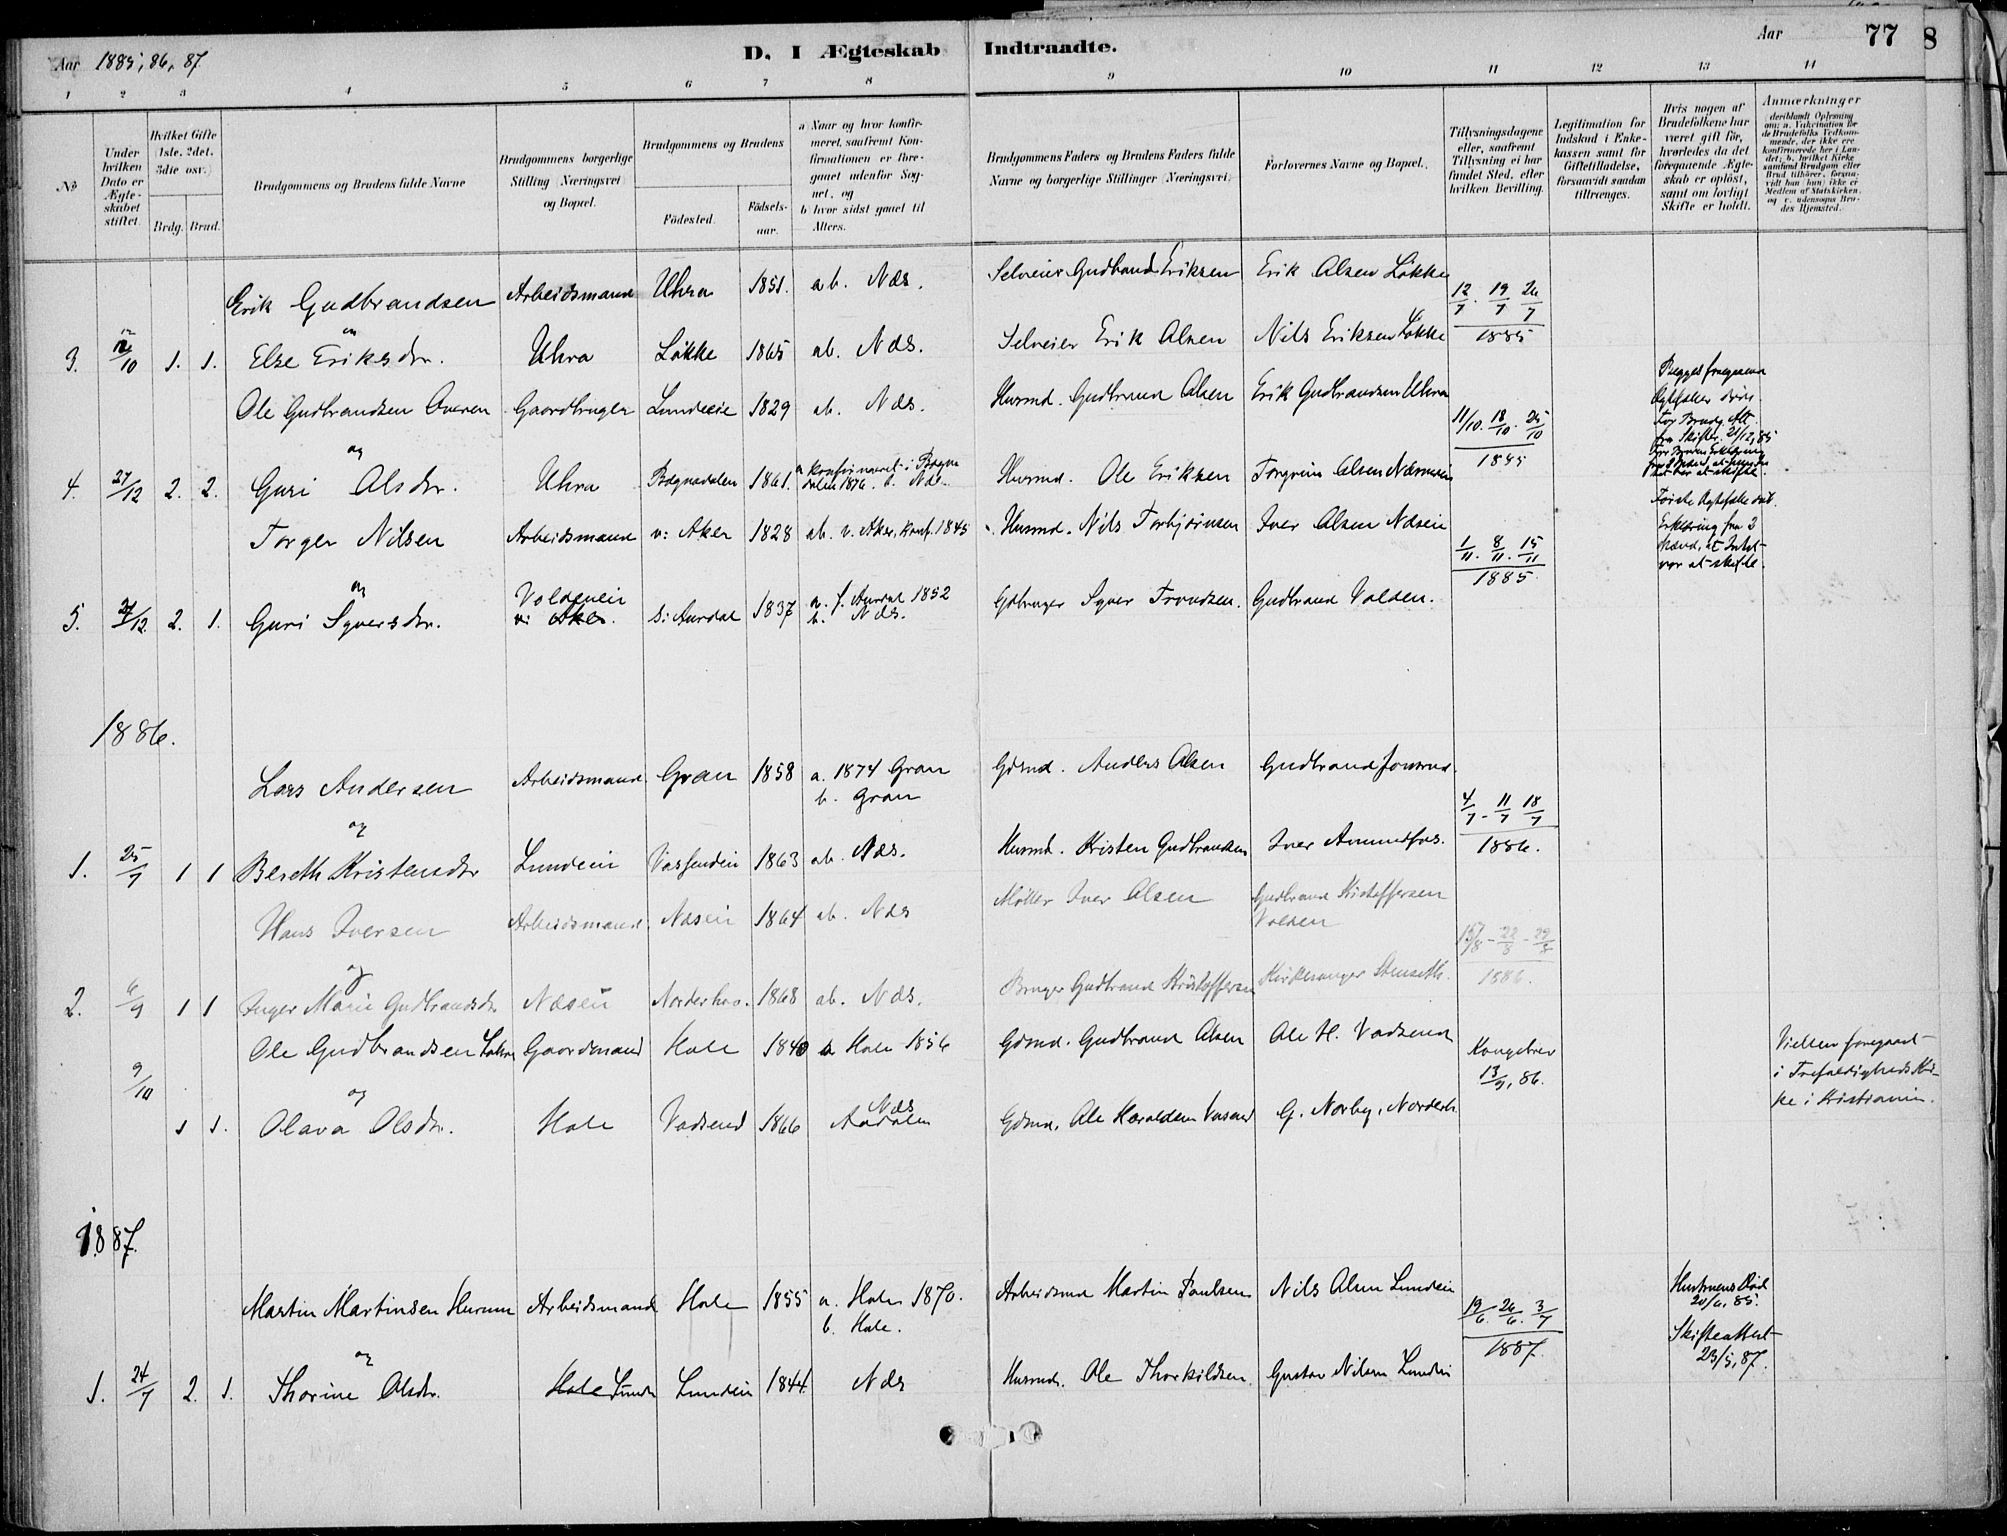 Aar 1885, 86, 87.
D. I Ægteskab Indtraadte.
Aar 77 8
1 2 3 4 5 6 7 8 9 10 11 12 13 14
No
Under hvilken Dato er Ægteskabet stiftet.
Hvilket Gifte (1ste, 2det, 3die osv.)
Brdg. Brud.
Brudgommens og Brudens fulde Navne
Brudgommens borgerlige Stilling (Næringsvei) og Bopæl.
Brudgommens og Brudens
Fødested. Fødselsaar.
a) Naar og hvor konfirmeret, saafremt Konfirmationen er foregaaet udenfor Sognet, og
b) hvor sidst gaaet til Alters.
Brudgommens Faders og Brudens Faders fulde Navne og borgerlige Stillinger (Næringsvei)
Forlovernes Navne og Bopæl.
Tillysningsdagene eller, saafremt Tillysning ei har fundet Sted, efter hvilken Bevilling.
Legitimation for Indskud i Enkekassen samt for Giftetilladelse, forsaavidt saadan tiltrænges.
Hvis nogen af Brudefolkene har været gift før, hvorledes da det foregaaende Ægteskab er opløst, samt om lovligt Skifte er holdt.
Anmærkninger (deriblandt Oplysning om: a. Vakcination for de Brudefolks Vedkommende, der ikke ere konfirmerede her i Landet; b. hvilket Kirkesamfund Brudgom eller Brud tilhører, forsaavidt han (hun) ikke er Medlem af Statskirken, og c. udensogns Brudes Hjemsted.
Erik Gudbrandsen Arbeidsmand Uhra 1851. ab. Næs. Selveier Gudbrand Eriksen Erik Olsen Løkke 12/7. 19/7 26/7
og
3. 12/10 1. 1. Else Eriksdr. Uhra Løkke 1865 ab. Næs. Selveier Erik Olsen Nils Eriksen Løkke 1885
Ole Gudbrandsen Gaardbruger Lundeeie 1829 ab. Næs. Husmd. Gudbrand Olsen Erik Gudbrandsen Uhra 11/10. 18/10. 25/10
og
4. 27/12 2. 2. Guri Olsdr. Uhra Bægnadalen 1861. a konfirmeret i Bægnadalen 1876. b. Næs. Husmd. Ole Eriksen Torgrim Olsen 1885
Torger Nilsen Arbeidsmand v: Aker 1828 ab. v. Aker, konf. 1845 Husmd. Nils Torbjørnsen Iver Olsen Næseie 1/11. 8/11. 15/11
Første Ægtefælle død. Erklæring fra 2 Mænd, at Intet var at skifte.
og
5. 27/12. 2. 1. Guri Syversdr. Voldeneie v: Aker. S: Aurdal 1837 a. S. Aurdal 1852 b. Næs. Gdbruger Syver Trondsen. Gudbrand Volden. 1885.
1886.
Lars Andersen Arbeidsmand Gran 1858 a. 1874 Gran b. Gran Gdmd. Anders Olsen Gudbrand 4/7 - 11/7 18/7
og
1. 25/7 1 1 Bereth Kristensdr Lundeie 1863 ab. Næs. Husmd. Kristen Gudbrandsen Iver 1886.
Hans Iversen Arbeidsmand Næseie 1864 ab. Næs Møller Iver Olsen Gudbrand Kristoffersen Volden 15/8 - 22/8 - 29/8
og
2. 6/9 1 1 Inger Marie Gudbrandsdr Næseie Norderhov. 1868 ab. Næs. Bruger Gudbrand Kristoffersen Kirkesanger Stenseth. 1886.
Ole Gudbrandsen Gaardmand Hole 1840 a Hole 1856 Gdmd. Gudbrand Olsen Ole H. Vadsend Kongebrev 13/9, 86.
Vielsen foregaaet i Trefoldigheds Kirke i Kristiania.
9/10
og
1 1. Olava Olsdr. Hole Vadsend 1866 Næs Aadalen Gdmd. Ole Haraldsen G. Norby, Norderh.
1887.
Martin Martinsen Hurum Arbeidsmand Hole 1855 a. Hole 1870. b. Hole. Arbeidsmd Martin Paulsen Nils Olsen Lundeie 19/6. 26/6. 3/7
Hustruens Død 20/4, 85.
Skifteattest 23/5, 87.
og
1. 24/7 2. 1. Thorine Olsdr. Hole Lunde Lundeie 1844 Næs Husmd. Ole Thorkildsen. Gustav Nilsen Lundeie 1887.